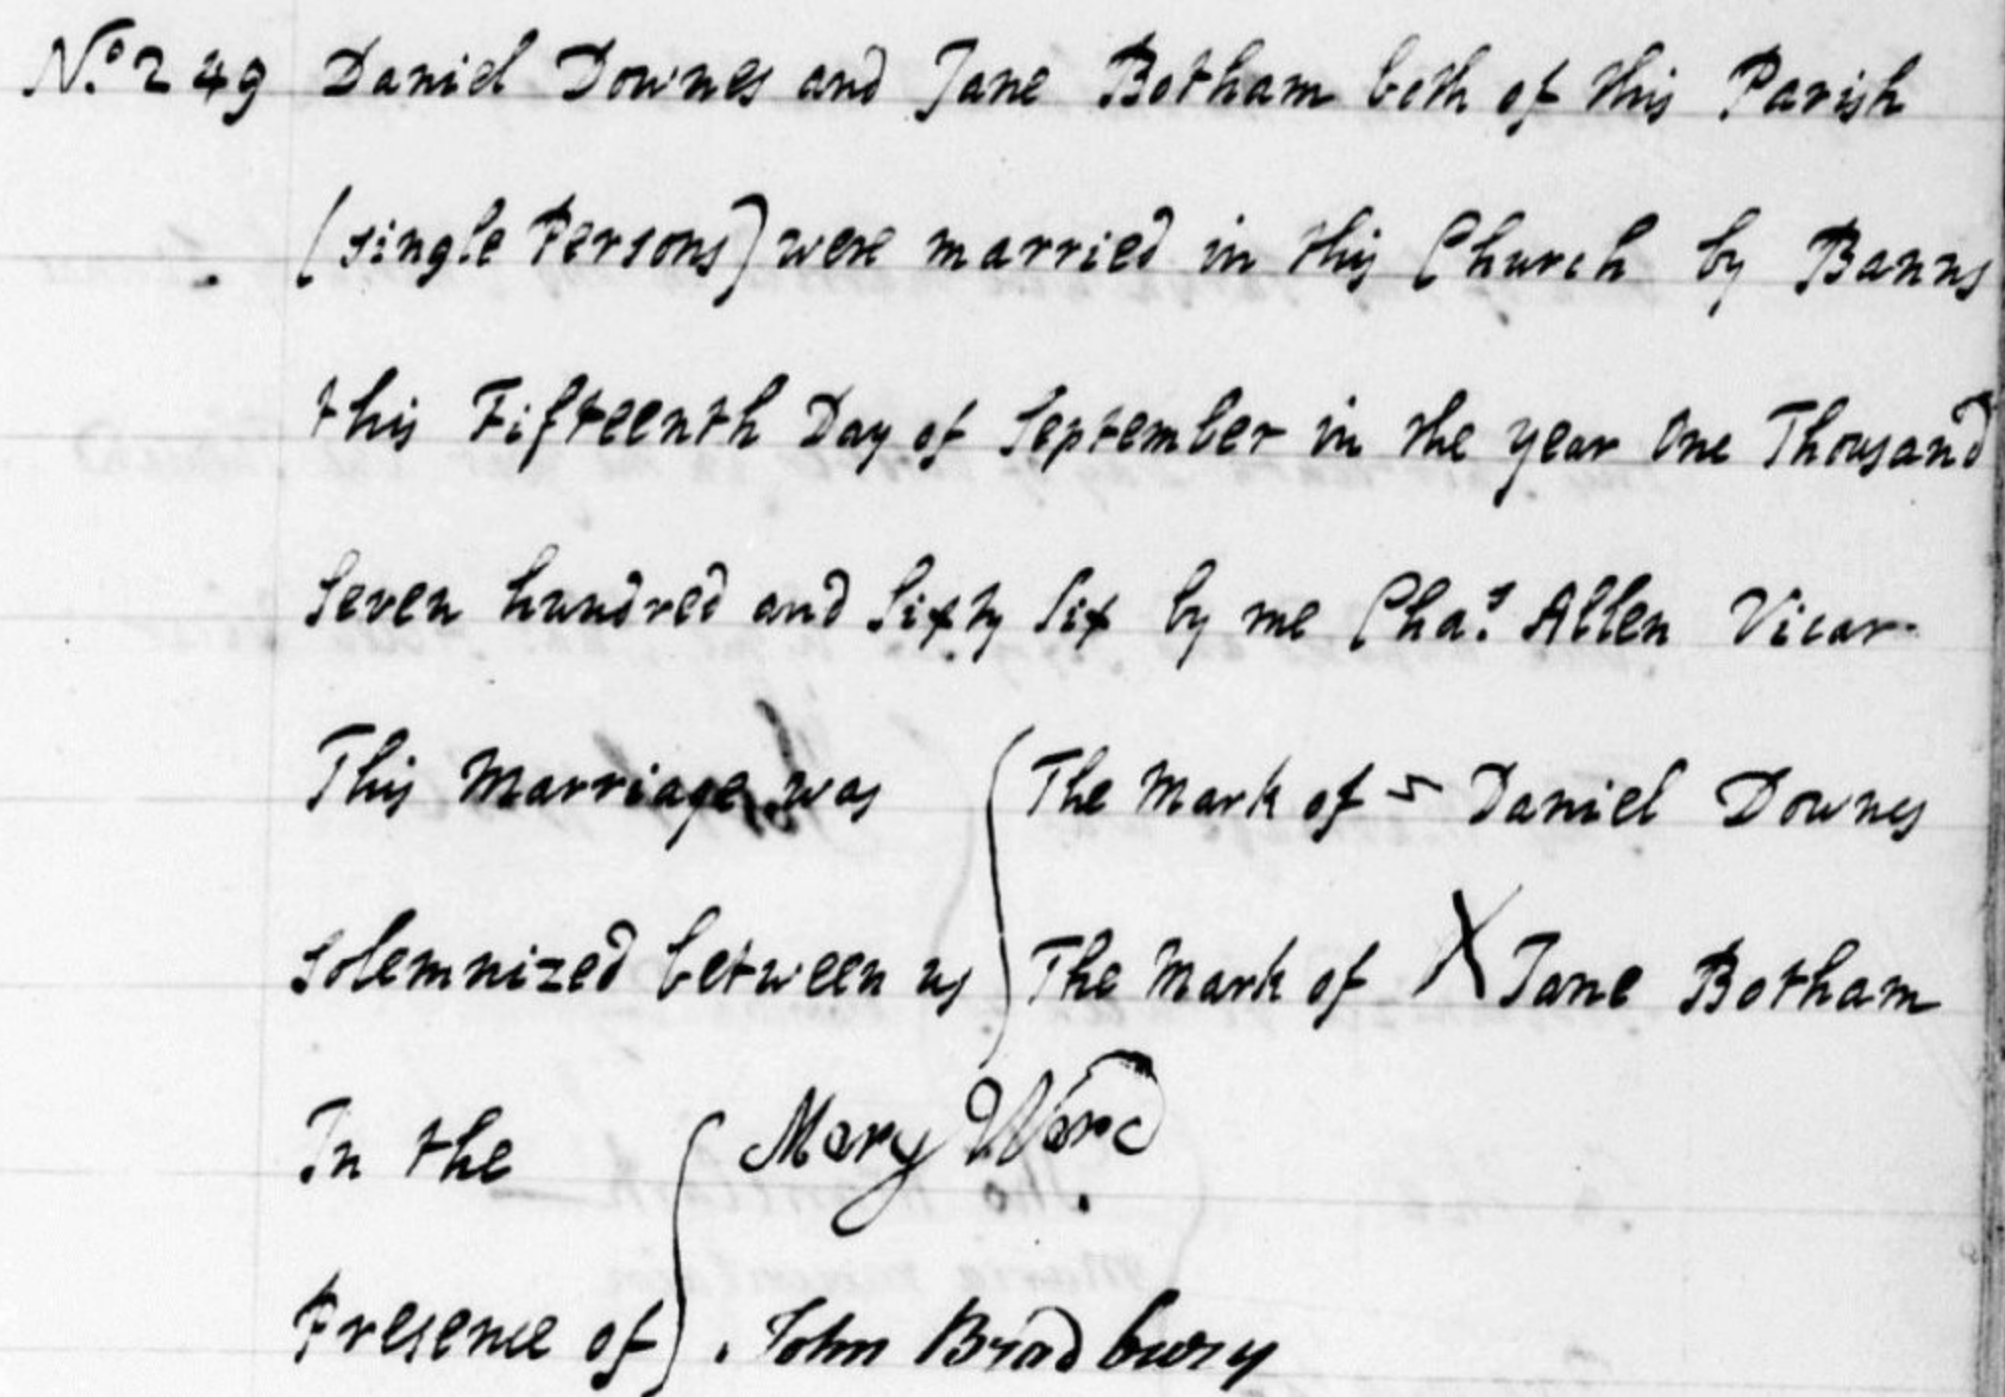 No. 249 Daniel Downes and Jane Botham both of this Parish
(single Persons) were married in this Church by Banns
this Fifteenth Day of September in the year One Thousand
Seven hundred and Sixty Six by me Chas. Allen Vicar
This Marriage was { The Mark of Daniel Downes
solemnized between us { The Mark of X Jane Botham
In the { Mary Ward
Presence of { John Bradbury